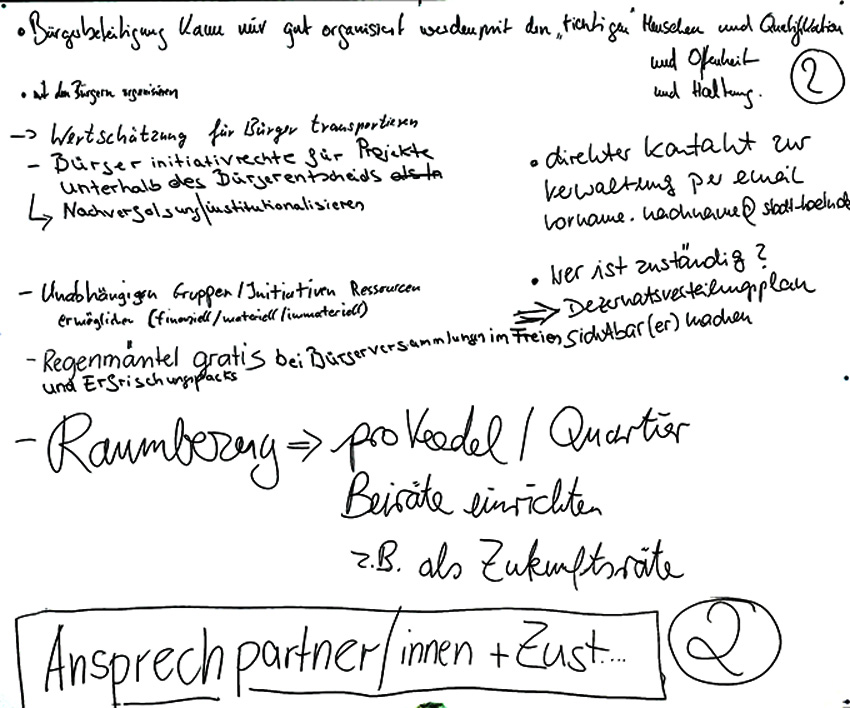 • Bürgerbeteiligung kann nur gut organisiert werden mit den „richtigen" Menschen und Qualifikation
und Offenheit
und Haltung.
2
• mit den Bürgern organisieren
-> Wertschätzung für Bürger transportieren
- Bürgerinitiativrechte für Projekte
unterhalb des Bürgerentscheids
↳ Nachverfolgung/institutionalisieren
• direkter Kontakt zur
Verwaltung per email
vorname.nachname@stadt-koeln.de
• Wer ist zuständig?
⇒ Dezernatsverteilungsplan
sichtbar(er) machen
- Unabhängigen Gruppen/Initiativen Ressourcen
ermöglichen (finanziell/materiell/immateriell)
- Regenmäntel gratis bei Bürgerversammlungen im Freien
und Erfrischungspacks
- Raumbezug => pro Veedel / Quartier
Beiräte einrichten
z.B. als Zukunftsräte
Ansprechpartner/innen + Zust...
2